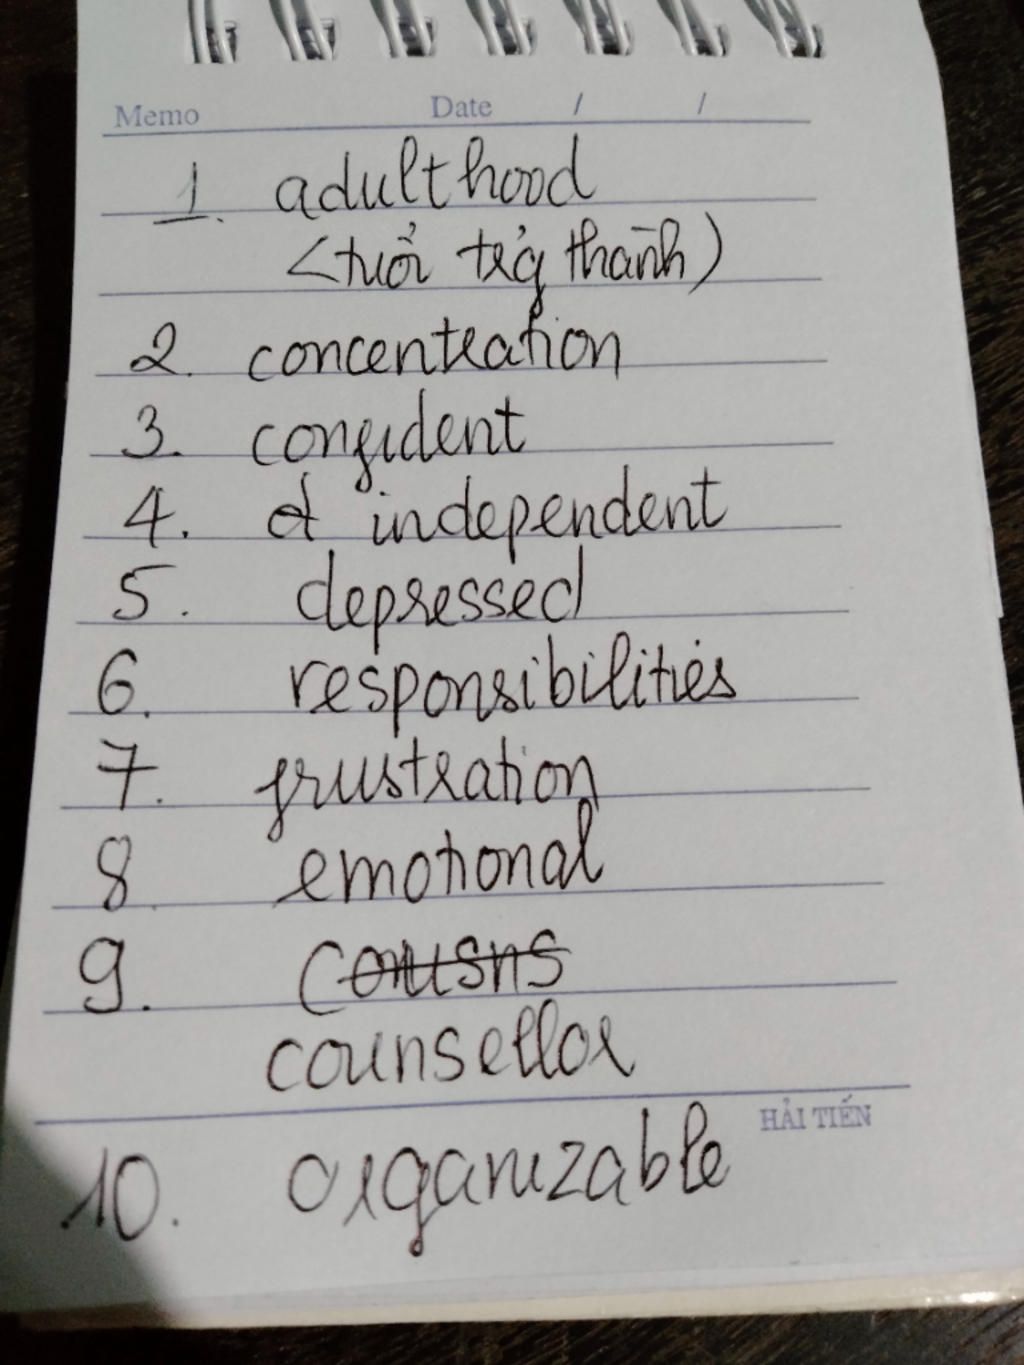 Memo Date / /
1. adulthood
(tuổi trg thành)
2. concentration
3. confident
4. independent
5. depressed
6. responsibilities
7. frustration
8. emotional
9. Consns
counsellor
HẢI TIẾN
10. organizable